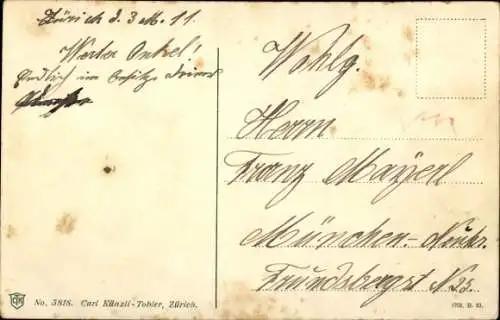 Zürich d. 3 M. 11.
Werter Onkel!
Endlich im Besitze Deines
Wohlg.
Herrn
Franz Mayerl
München.-Neuhr.
Frundsbergst N 25.
No. 5818. Carl Künzli-Tobler, Zürich.